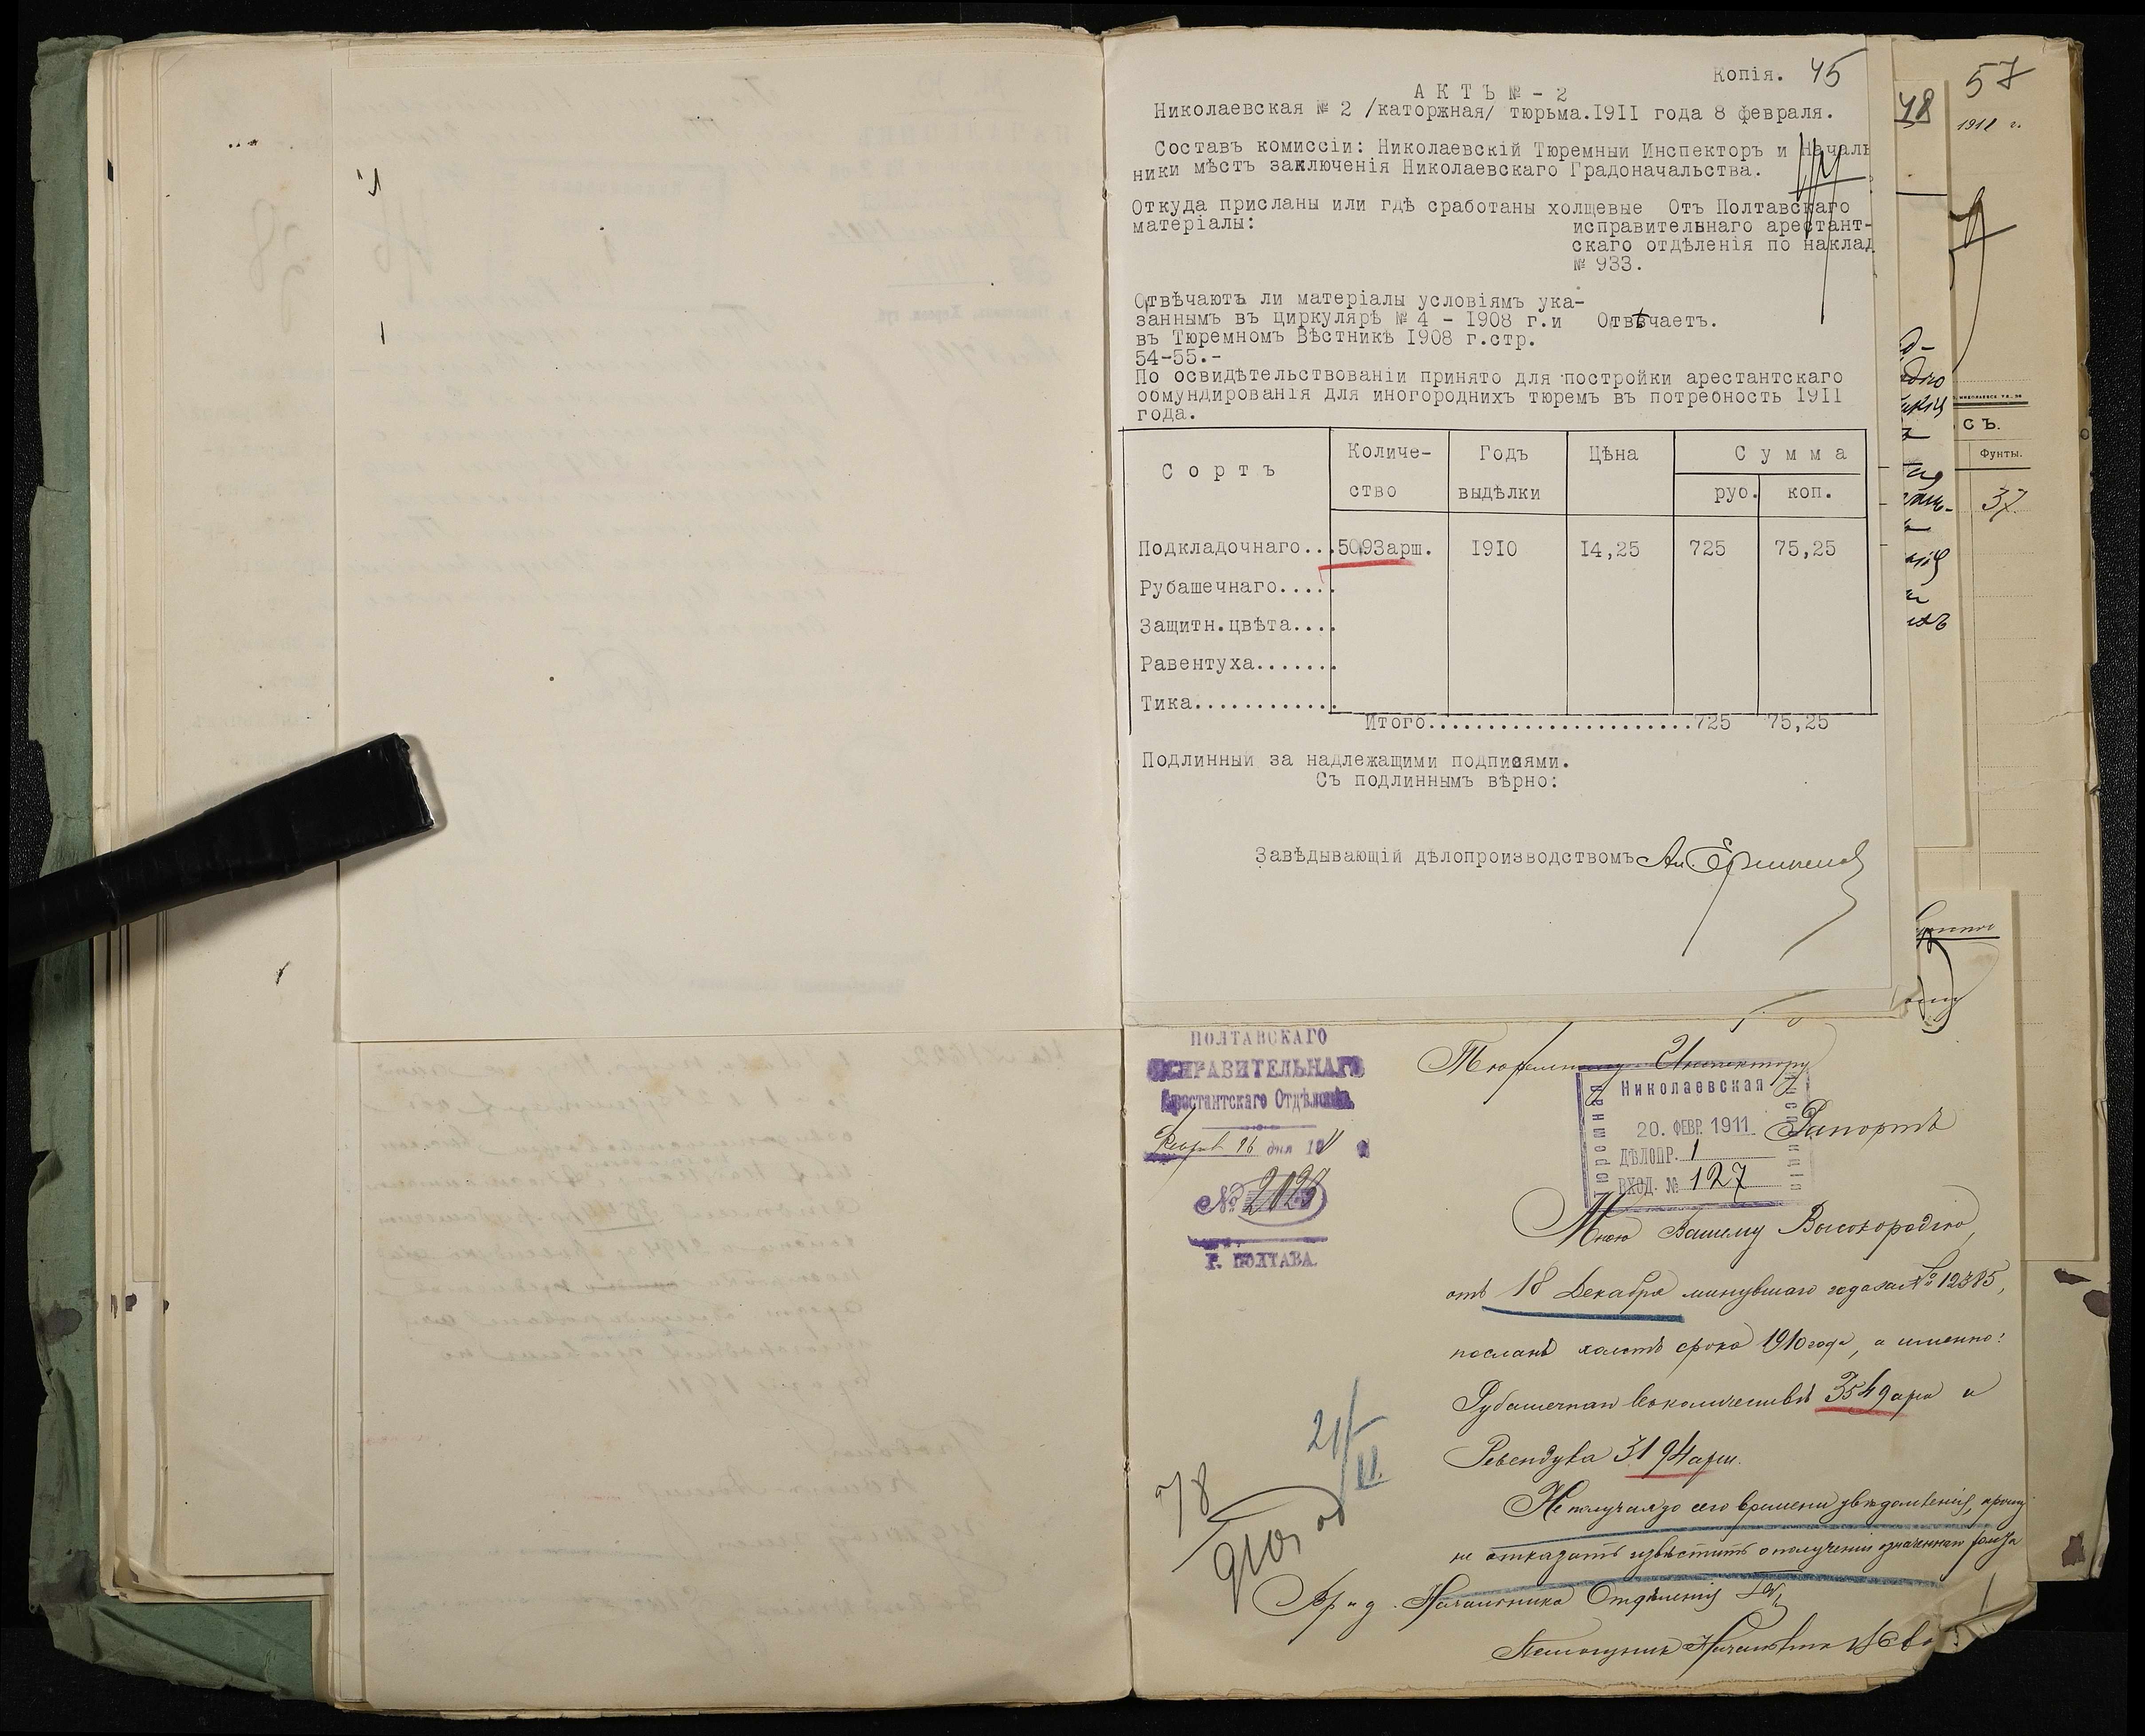 Копія. 45
АКТЪ № - 2
Николаевская № 2 /каторжная/ тюрьма.1911 года 8 февраля.
Составъ комиссіи: Николаевскій Тюремный Инспекторъ и Началь
ники мѣстъ заключенія Николаевскаго Градоначальства.
Откуда присланы или гдѣ сработаны холщевые
матеріалы:
Отъ Полтавскаго
исправительнаго арестант-
скаго отдѣленія по наклад
№ 933.
Отвѣчаютъ ли матеріалы условіямъ ука-
заннымъ въ циркулярѣ № 4 - 1908 г.и
въ Тюремномъ Вѣстникѣ 1908 г.стр.
54-55.-
Отвѣчаетъ.
По освидѣтельствованіи принято для постройки арестантскаго
обмундированія для иногороднихъ тюремъ въ потребность 1911
года.
Сортъ Количе- Годъ Цѣна Сумма
ство выдѣлки руб. коп.
Подкладочнаго...5093арш. 1910 14,25 725 75,25
Рубашечнаго.....
Защитн.цвѣта....
Равентуха.......
Тика............
Итого........................725 75,25
Подлинный за надлежащими подписями.
Съ подлиннымъ вѣрно:
Завѣдывающій дѣлопроизводствомъ
ПОЛТАВСКАГО
ИСПРАВИТЕЛЬНАГО
Арестантскаго Отдѣленія
дня
№ 2028
Г. ПОЛТАВА.
Тюремному Инспектору
Николаевская
20. ФЕВР. 1911
ДѢЛОПР. 1
ВХОД. № 127
Тюремная
Инспекція
Рапортъ
Мною Вашему Высокородію,
отъ 18 Декабря минувшаго года за № 12385,
посланъ холстъ срока 1910 года, а именно:
Рубашечнаго въ количествѣ 3549 арш и
Ревендука 3194 арш.
Не получая до сего времени увѣдомленія, прошу
не отказать извѣстить о полученіи означеннаго холста
Вр и д. Начальника Отдѣленія
Помощник Начальника
78
21/II
57
1911 г.
48
СЪ.
Фунты.
37